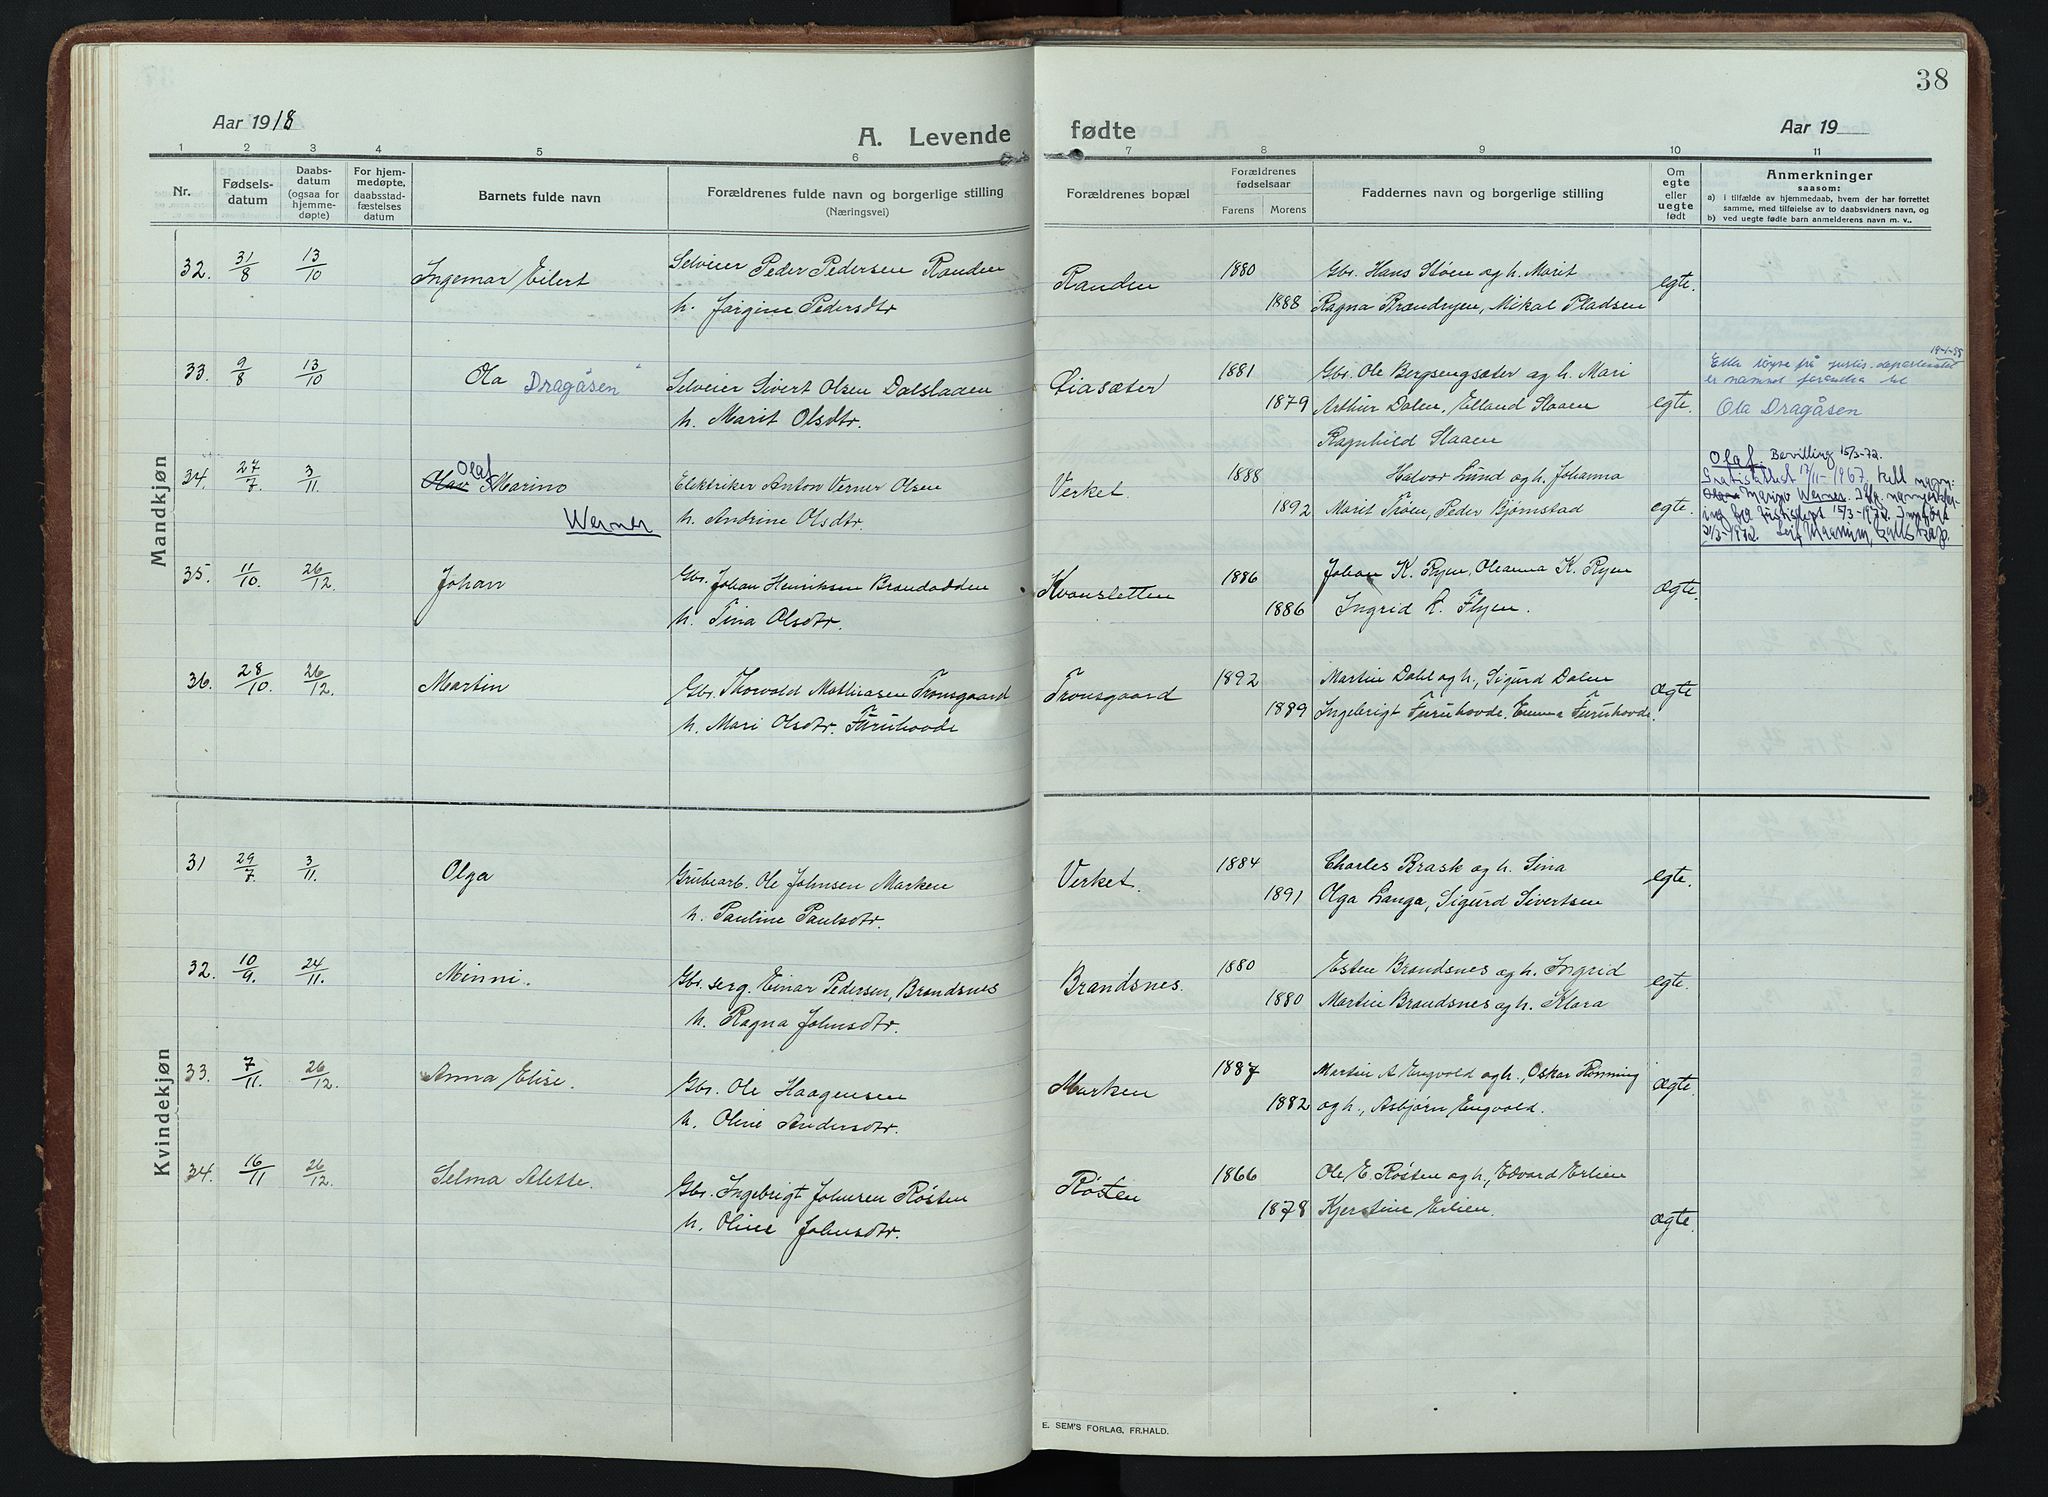 38
Aar 1918
A. Levende fødte
Aar 19
1 2 3 4 5 6 7 8 9 10 11
Nr.
Fødselsdatum
Daabsdatum (ogsaa for hjemmedøpte)
For hjemmedøpte, daabsstadfæstelses datum
Barnets fulde navn
Forældrenes fulde navn og borgerlige stilling
(Næringsvei)
Forældrenes bopæl
Forældrenes fødselsaar
Farens Morens
Faddernes navn og borgerlige stilling
Om egte eller uegte født
Anmerkninger
saasom:
a) i tilfælde av hjemmedaab, hvem der har forrettet
samme, med tilføielse av to daabsvidners navn, og
b) ved uegte fødte barn anmelderens navn m. v..
Mandkjøn
32. 31/8 13/10 Ingemar Eilert Selveier Peder Pedersen Randen Randen 1880 Gbr. Hans Støen og h. Marit egte.
h. Jørgine Pedersdtr 1888 Ragna Brændryen, Mikal Pladsen
33. 9/8 13/10 Ola Dragåsen Selveier Sivert Olsen Dalslaaen Liasæter 1881 Gbr. Ole Bergsengsæter og h. Mari egte.
h. Marit Olsdtr. 1879 Arthur Dalen, Elland Slaaen
Ragnhild Slaaen
Etter løyve frå justis-departementet 19-1-38
er namnet forandra til
Ola Dragåsen
34. 27/7 3/11. Olav Olaf Marino Elektriker Anton Verner Olsen Verket. 1888 Halvor Lund og h. Johanna egte.
Werner h. Andrine Olsdtr. 1892 Marit Trøen, Peder Bjørnstad
Olaf. Bevilling 15/3-72.
17/11-1967. Fullt navn:
Marino Werner.
15/3-1972. Innført
35. 11/10. 26/12. Johan Gbr. Johan Henriksen Brandodden Kvansletten 1886 Johan K. Ryen, Oleanna K. Ryen ægte.
h. Tina Olsdtr. 1886 Ingrid K. Flyen.
36. 28/10. 26/12. Martin Gbr. Thorvald Mathiasen Tronsgaard Tronsgaard 1892 Martin Dahl og h., Sigurd Dalen ægte
h. Mari Olsdtr. Furuhovde 1889 Ingebrigt Furuhovde, Emma Furuhovde.
Kvindekjøn
31 29/7. 3/11. Olga Grubearb. Ole Johnsen Marken Verket. 1884 Charles Brask og h. Sina egte.
h. Pauline Paulsdtr. 1891 Olga Langa, Sigurd Sivertsen
32. 10/9. 24/11. Minni. Gbr. serg. Einar Pedersen, Brandsnes Brandsnes. 1880 Esten Brandsnes og h. Ingrid egte.
h. Ragna Johnsdtr. 1880 Martin Brandsnes og h. Klara
33. 7/11. 26/12. Anna Elise. Gbr. Ole Haagensen Marken 1887 Martin A Engvold og h., Oskar Rønning ægte.
h. Oline Andersdtr. 1882 og h., Asbjørn Engvold.
34. 16/11 26/12. Selma Alette. Gbr. Ingebrigt Johnsen Røsten Røsten 1866 Ole E. Røsten og h., Edvard Erlien ægte.
h. Oline Johnsdtr. 1878 Kjerstine Erlien.
E. SEM'S FORLAG, FR.HALD.